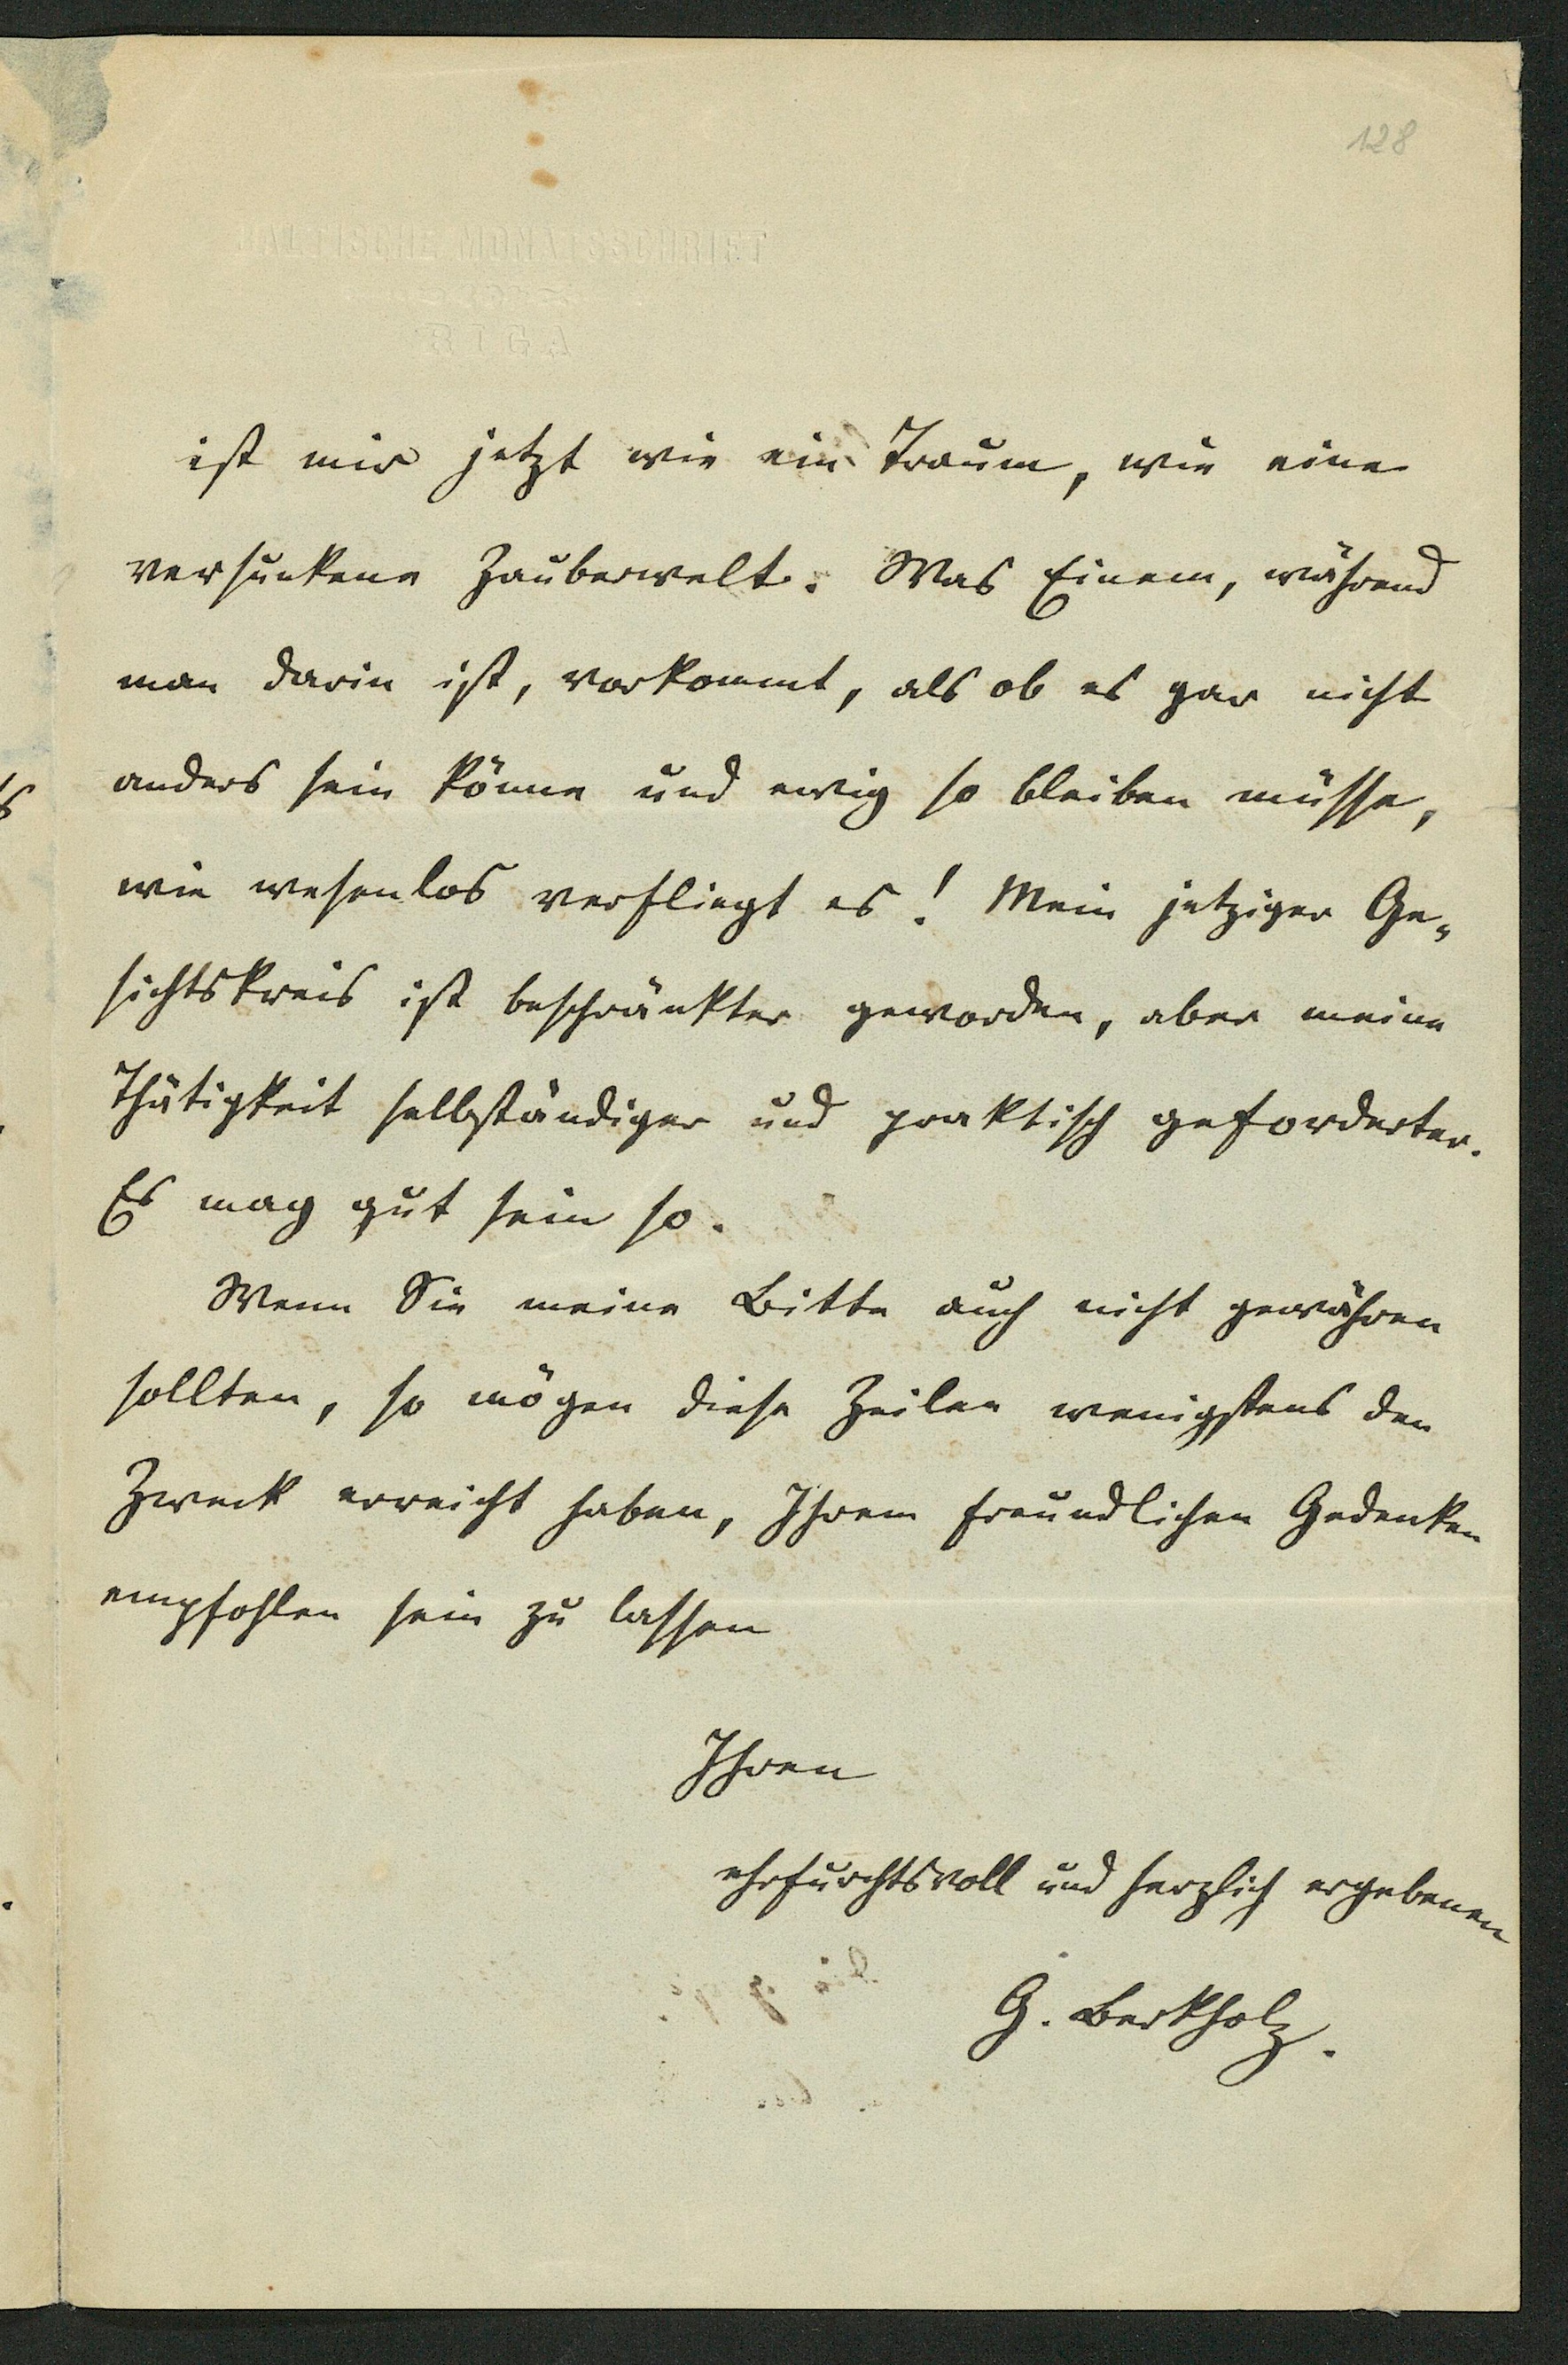 128
BALTISCHE MONATSSCHRIFT
RIGA
ist mir jetzt wie ein Traum, wie eine
versunkene Zauberwelt. Was Einem, während
man darin ist, vorkommt, als ob es gar nicht
anders sein könne und ewig so bleiben müsse,
wie wesenlos verfliegt es! Mein jetziger Ge-
sichtskreis ist beschränkter geworden, aber meine
Thätigkeit selbständiger und praktisch geforderter.
Es mag gut sein so.
Wenn Sie meine Bitte auch nicht gewähren
sollten, so mögen diese Zeilen wenigstens den
Zweck erreicht haben, Ihrem freundlichen Gedenken
empfohlen sein zu lassen
Ihren
ehrfurchtsvoll und herzlich ergebenen
G. Berkholz.